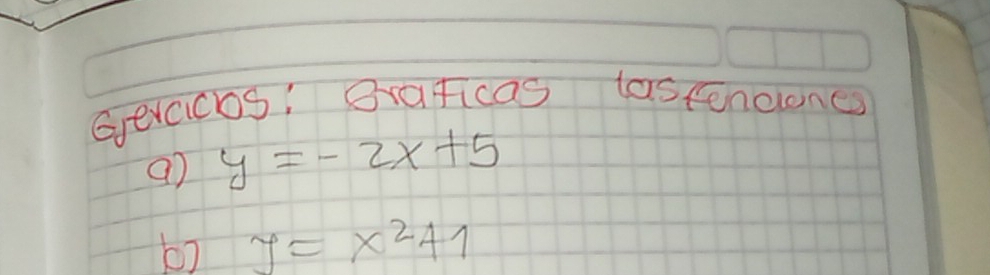 Ejercicios: Graficas las fenciones
a) y = - 2x + 5
b) y = x² + 1